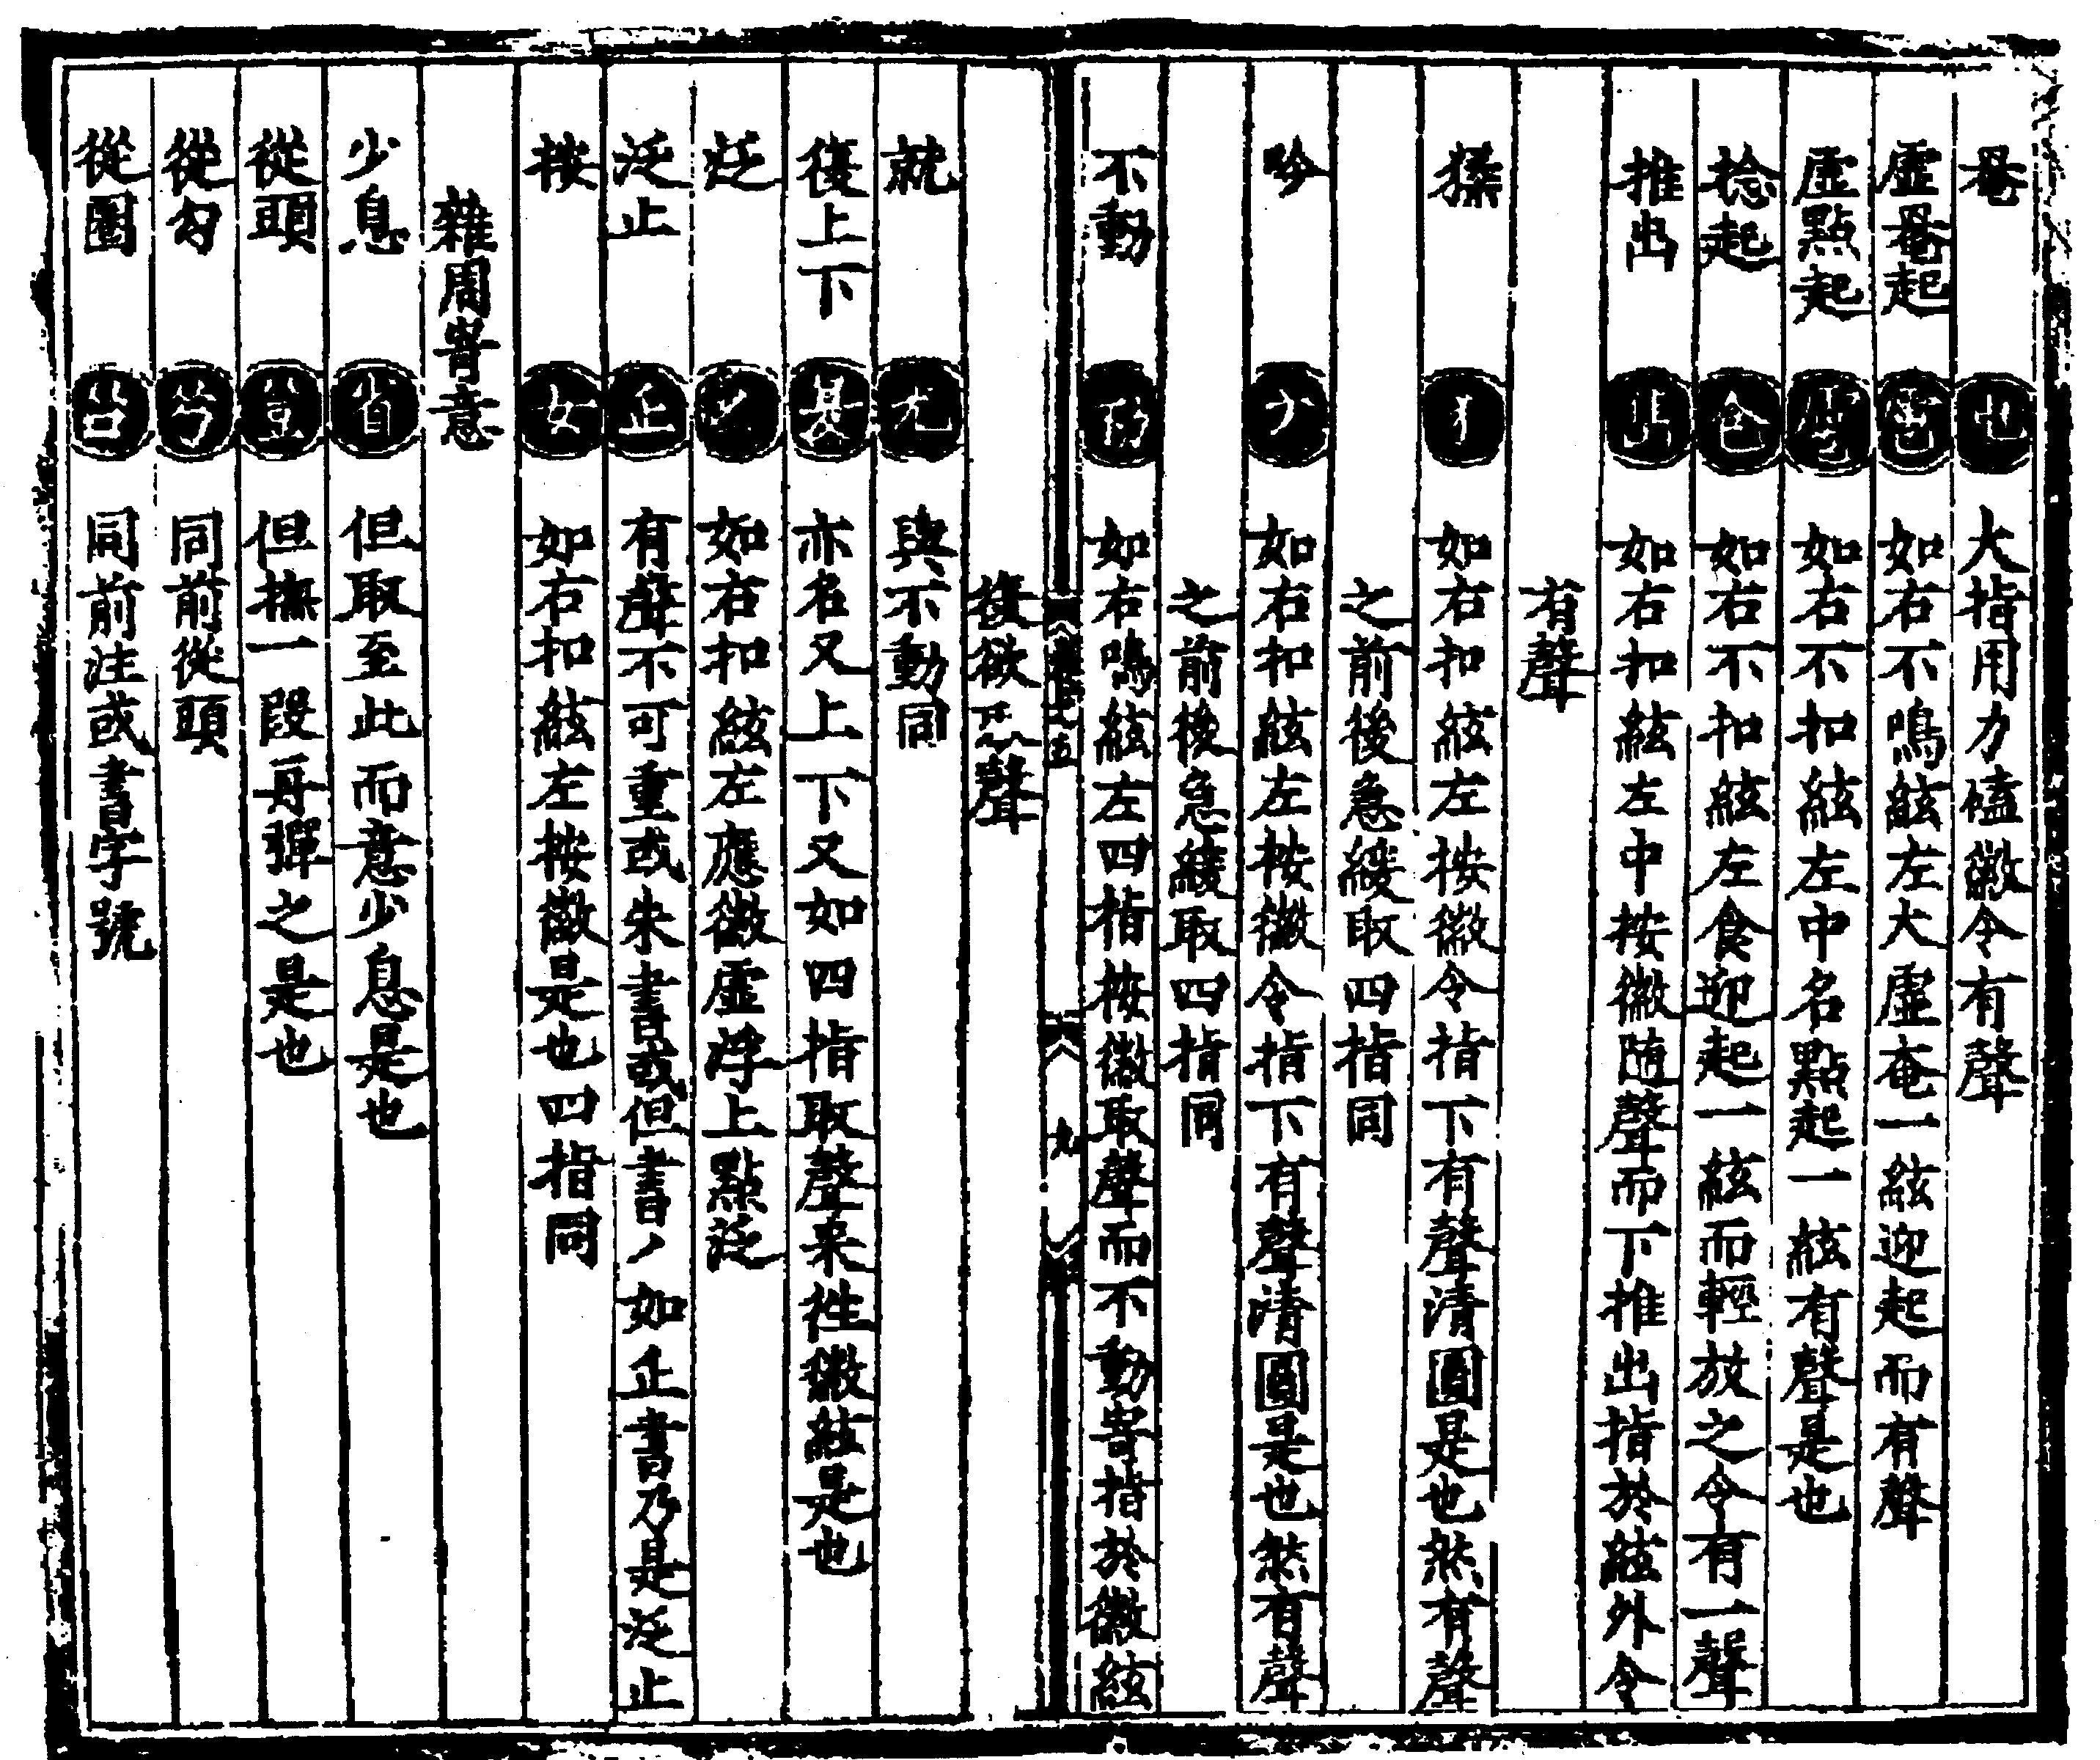 罨 大指用力磕徽令有聲
虛罨起 如右不鳴絃左大虛奄一絃迎起而有聲
虛點起 如右不扣絃左中名點起一絃有聲是也
捻起 如右不扣絃左食迎起一絃而輕放之令有一聲
推出 如右扣絃左中按徽随聲而下推出指於絃外令
有聲
猱 如右扣絃左按徽令指下有聲清圓是也然有聲
之前後急緩取四指同
吟 如右扣絃左按徽令指下有聲清圓是也然有聲
之前後急緩取四指同
不動 如右鳴絃左四指按徽取聲而不動寄指於徽絃
後欲 聲
九
就 與不動同
復上下 亦名又上下又如四指取聲来徃徽絃是也
泛 如右扣絃左應徽虛浮上點泛
泛止 止 有聲不可重或朱書或但書丿如止書乃是泛止
按 女 如右扣絃左按徽是也四指同
雜周寄意
少息 省 但取至此而意少息是也
從頭 但撫一段再彈之是也
從勾 同前從頭
從圈 同前注或書字號